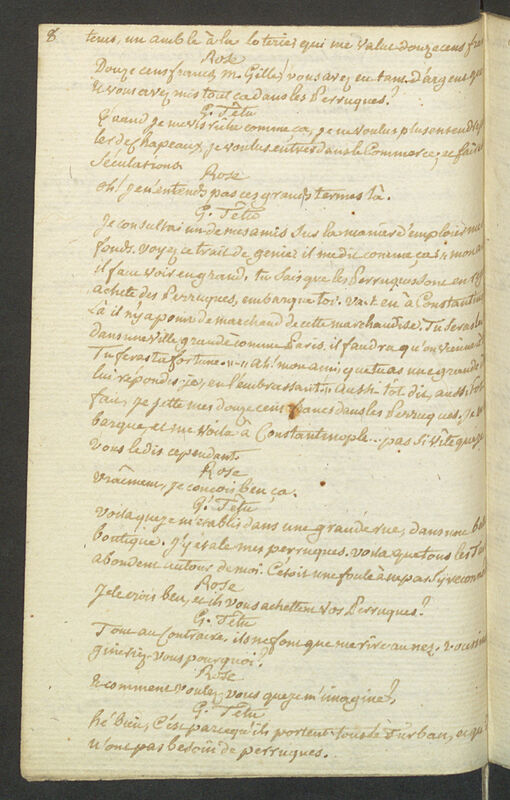 8.
tems, un amble à la loterie qui me value douze cens fran
Rose
Douze cens francs, m. Gille! vous avez eu tans d'argent que
& vous avez mis tout ça dans les Perruques?
G. Têtu
Quand je me vis riche comme ça, je ne voulus plus entendre
ler de Chapeaux, je voulus entrer dans le Commerce, et faire
séculations.
Rose
oh! je n'entends pas ces grands termes là.
G. Têtu
Je consultai un de mes amis sur la manière d'emploier mes
fonds. voyez ce trait de genie: il me dit comme ça: " mon am
il faut voir en grand. tu sais que les Perruques sont en
achete des Perruques, embarque toi. va t en à Constantin
Là il n'y a point de marchand de cette marchandise. Tu seras
dans une ville grande comme Paris. il faudra qu'on vienne à
Tu feras ta fortune. -"- Ah! mon ami, que tu as une grande
lui répondis-je, en l'embrassant." Aussi tôt dit, aussi tôt
fait, je jette mes douze cens francs dans les Perruques. Je
barque, et me voila à Constantinople... pas si vite que je
vous le dis cependant.
Rose
vraiment, je conçois ben ça.
G. Têtu
Voila que je m'établis dans une grande rue, dans une belle
boutique. J'y étale mes perruques. voila que tous les Tur
abondent autour de moi. C'étoit une foule à ne pas s'y reconn
Rose
Je le crois ben, et ils vous achettent vos Perruques?
G. Têtu
Tout au Contraire. ils ne font que me rire au nez. vous ima
gineriez-vous pourquoi?
Rose
& comment voulez vous que je m'imagine?
G. Têtu
hé bien, C'est parcequ'ils portent tous le Turban, et qu'
n'ont pas besoin de perruques.